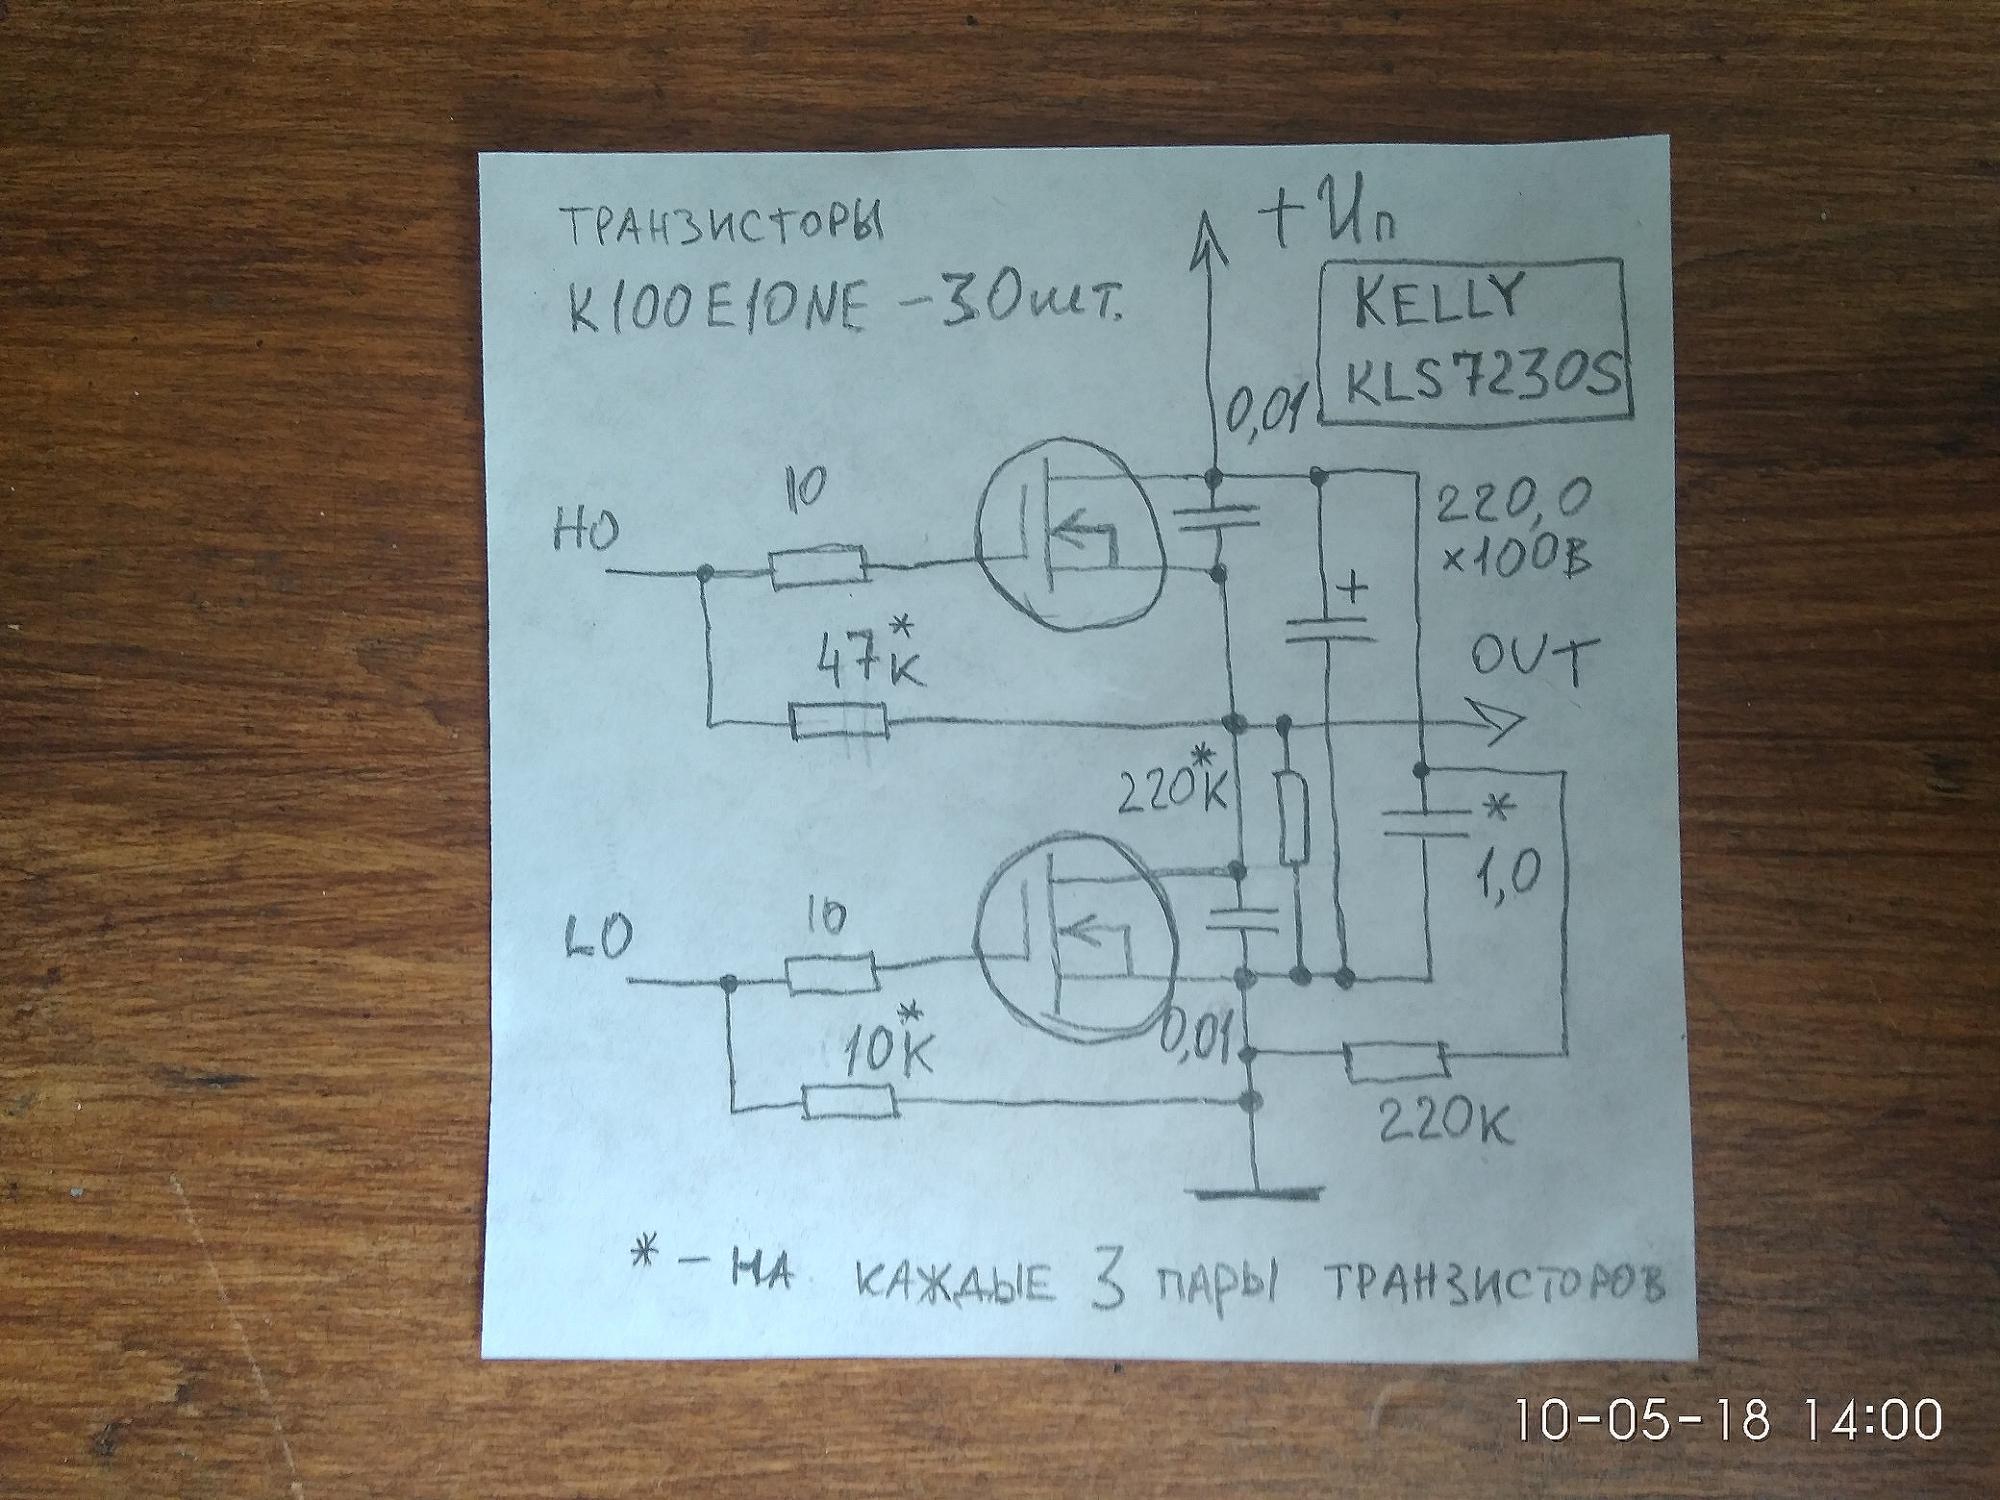 ТРАНЗИСТОРЫ
K100E10NE - 30шт.
+Uп
KELLY
KLS7230S
0,01
10
HO
220,0
×100В
+
47к*
OUT
220к*
*
1,0
10
LO
10к*
0,01
220к
* - НА КАЖДЫЕ 3 ПАРЫ ТРАНЗИСТОРОВ
10-05-18 14:00